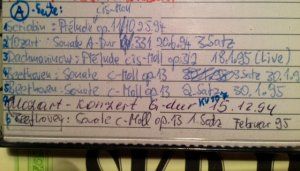 A - Seite: cis-Moll
1. Scriabin: Prélude op. 11/10 25.94
2. Mozart: Sonate A-Dur KV 331 20.6.94 3. Satz
3. Rachmaninow: Prélude cis-Moll op. 3/2 18.1.95 (Live)
4. Beethoven: Sonate c-Moll op. 13 3. Satz 30.1.9
5. Beethoven: Sonate c-Moll op. 13 2. Satz 30.1.95
Mozart-Konzert G-dur KV 15.12.94
Beethoven: Sonate c-Moll op. 13 1. Satz Februar 95